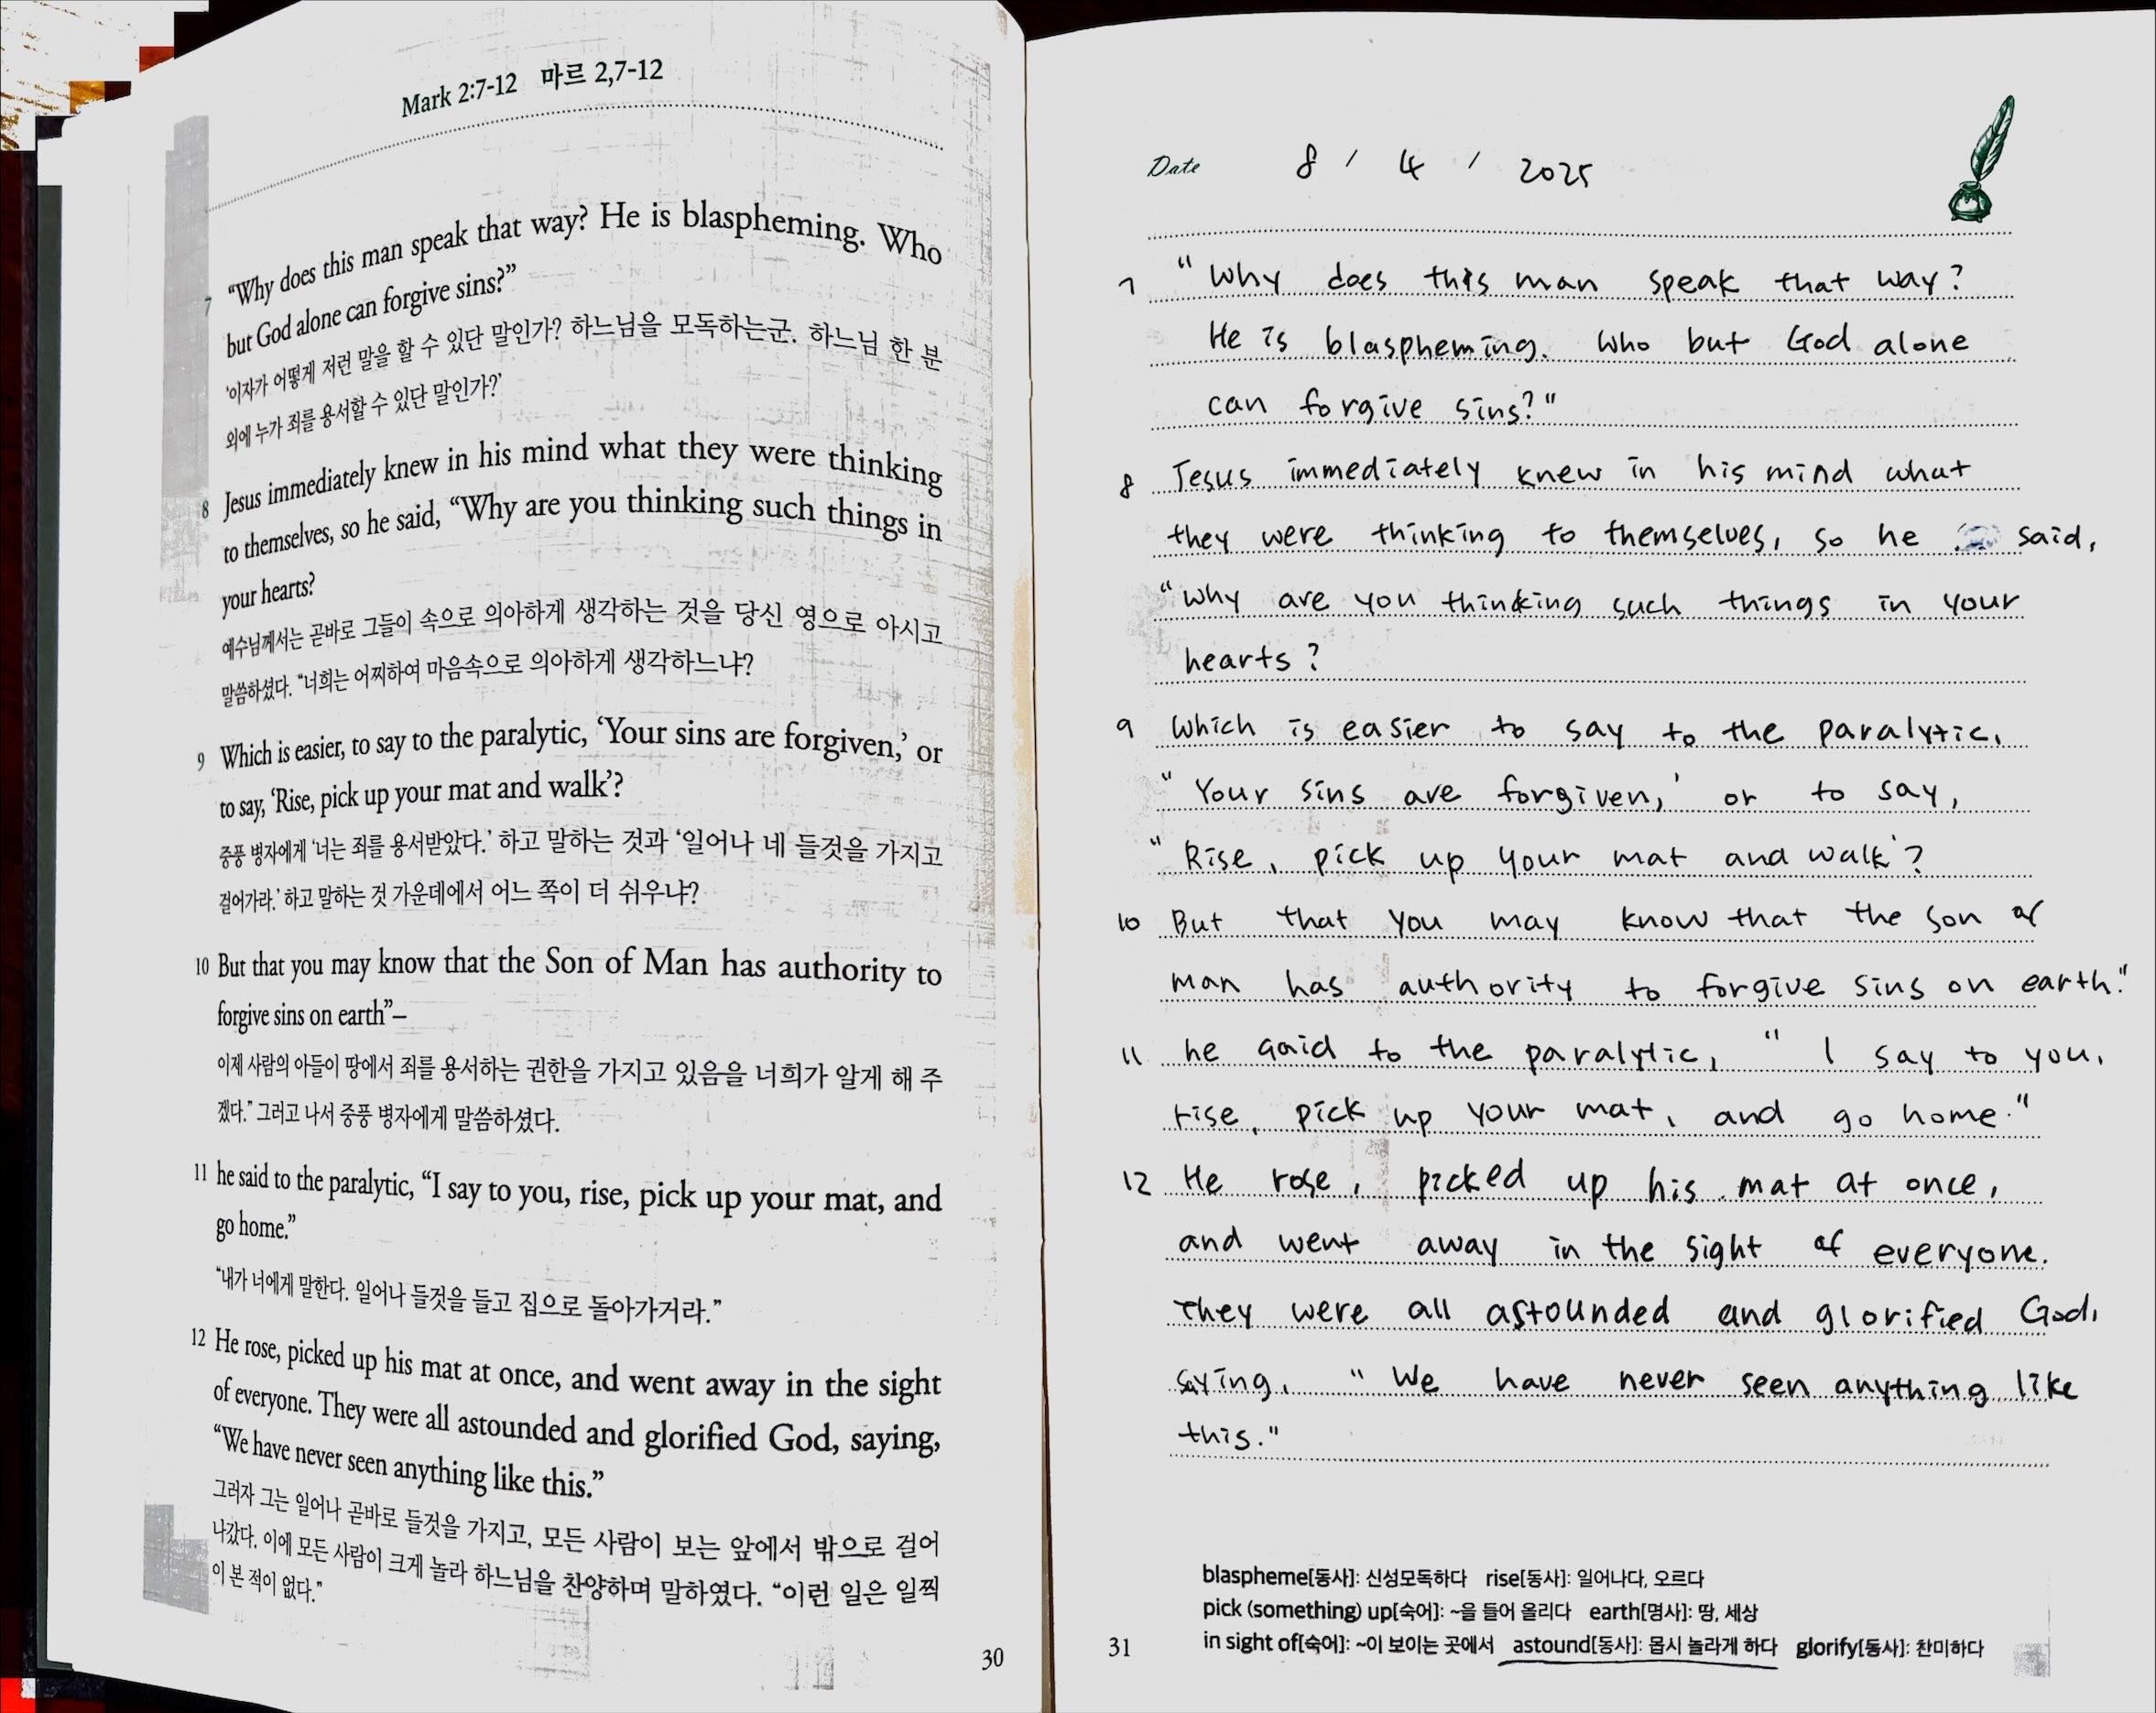 Mark 2:7-12 마르 2,7-12
7 “Why does this man speak that way? He is blaspheming. Who
but God alone can forgive sins?”
‘이자가 어떻게 저런 말을 할 수 있단 말인가? 하느님을 모독하는군. 하느님 한 분
외에 누가 죄를 용서할 수 있단 말인가?’
8 Jesus immediately knew in his mind what they were thinking
to themselves, so he said, “Why are you thinking such things in
your hearts?
예수님께서는 곧바로 그들이 속으로 의아하게 생각하는 것을 당신 영으로 아시고
말씀하셨다. “너희는 어찌하여 마음속으로 의아하게 생각하느냐?
9 Which is easier, to say to the paralytic, ‘Your sins are forgiven,’ or
to say, ‘Rise, pick up your mat and walk’?
중풍 병자에게 ‘너는 죄를 용서받았다.’ 하고 말하는 것과 ‘일어나 네 들것을 가지고
걸어가라.’ 하고 말하는 것 가운데에서 어느 쪽이 더 쉬우냐?
10 But that you may know that the Son of Man has authority to
forgive sins on earth”–
이제 사람의 아들이 땅에서 죄를 용서하는 권한을 가지고 있음을 너희가 알게 해 주
겠다.” 그러고 나서 중풍 병자에게 말씀하셨다.
11 he said to the paralytic, “I say to you, rise, pick up your mat, and
go home.”
“내가 너에게 말한다. 일어나 들것을 들고 집으로 돌아가거라.”
12 He rose, picked up his mat at once, and went away in the sight
of everyone. They were all astounded and glorified God, saying,
“We have never seen anything like this.”
그러자 그는 일어나 곧바로 들것을 가지고, 모든 사람이 보는 앞에서 밖으로 걸어
나갔다. 이에 모든 사람이 크게 놀라 하느님을 찬양하며 말하였다. “이런 일은 일찍
이 본 적이 없다.”
30
Date 8 / 4 / 2025
7 "Why does this man speak that way?
He is blaspheming. Who but God alone
can forgive sins?"
8 Jesus immediately knew in his mind what
they were thinking to themselves, so he said,
"Why are you thinking such things in your
hearts?
9 Which is easier to say to the paralytic,
"Your sins are forgiven,' or to say,
"Rise, pick up your mat and walk'?
10 But that you may know that the son of
man has authority to forgive sins on earth."
11 he said to the paralytic, "I say to you,
rise, pick up your mat, and go home."
12 He rose, picked up his mat at once,
and went away in the sight of everyone.
They were all astounded and glorified God,
saying, "We have never seen anything like
this."
blaspheme[동사]: 신성모독하다 rise[동사]: 일어나다, 오르다
pick (something) up[숙어]: ~을 들어 올리다 earth[명사]: 땅, 세상
in sight of[숙어]: ~이 보이는 곳에서 astound[동사]: 몹시 놀라게 하다 glorify[동사]: 찬미하다
31